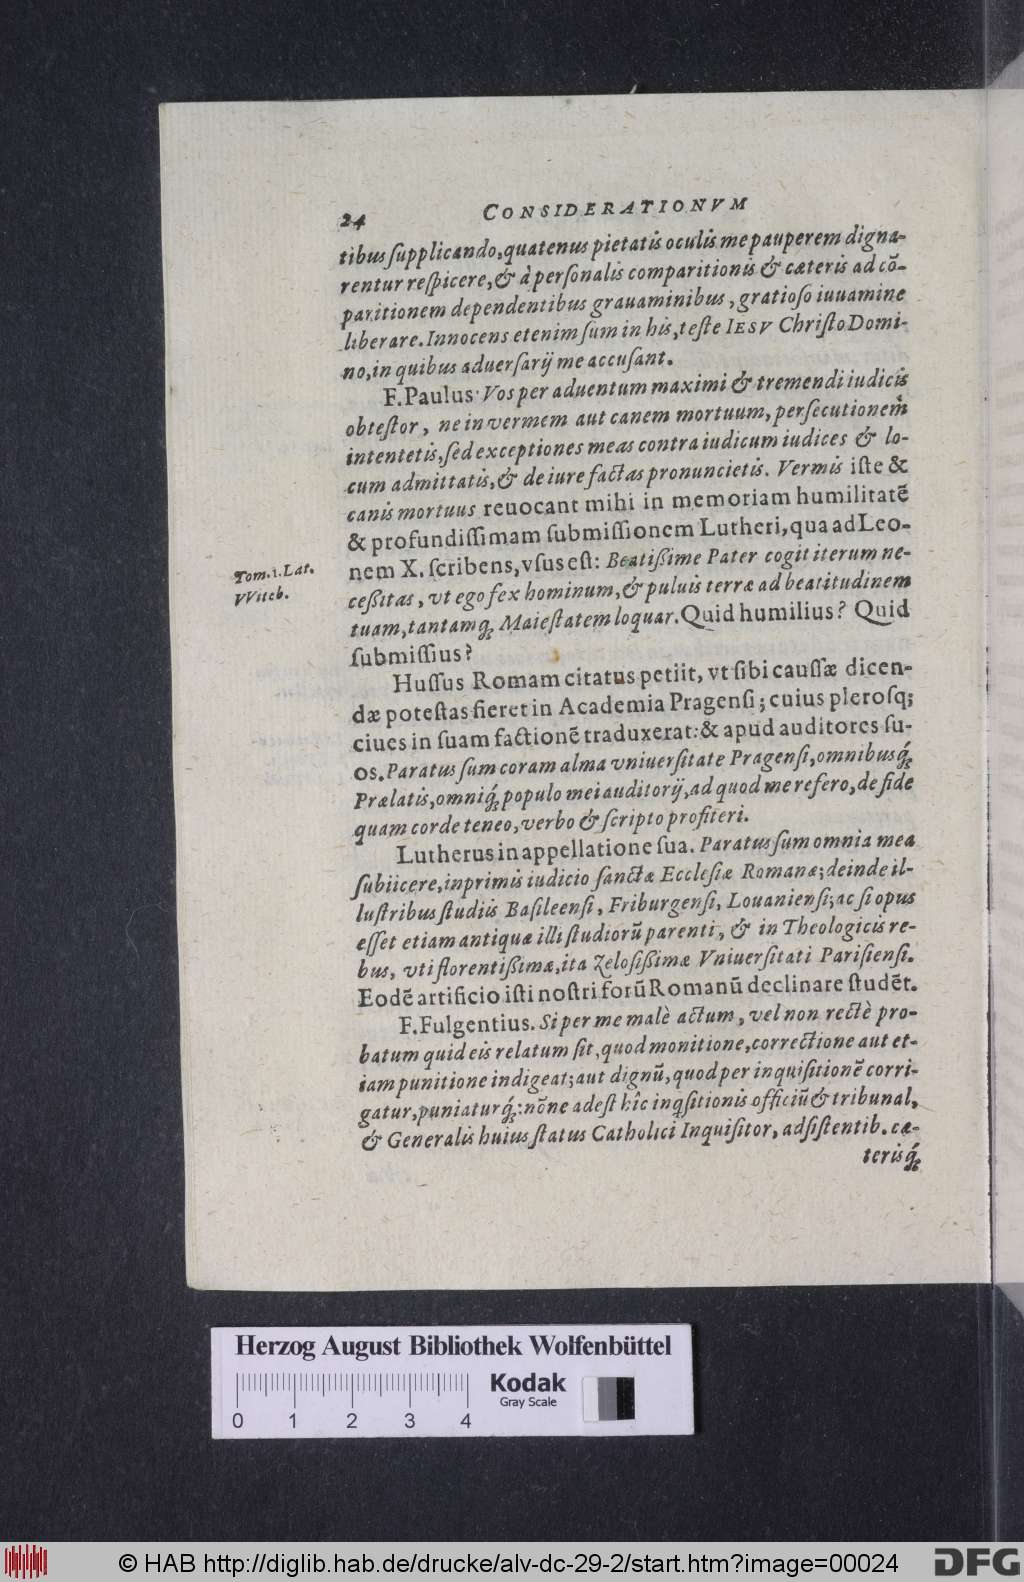 24 CONSIDERATIONVM
tibus ſupplicando, quatenus pietatis oculis me pauperem digna-
rentur reſpicere, & à perſonalis comparitionis & cæteris ad cō-
paritionem dependentibus grauaminibus, gratioſo iuuamine
liberare. Innocens etenim ſum in his, teſte IESV Chriſto Domi-
no, in quibus aduerſarij me accuſant.
F. Paulus. Vos per aduentum maximi & tremendi iudicis
obteſtor, ne in vermem aut canem mortuum, perſecutionem
intentetis, ſed exceptiones meas contra iudicum iudices & lo-
cum admittatis, & de iure factas pronuncietis. Vermis iſte &
canis mortuus reuocant mihi in memoriam humilitatē
& profundiſſimam ſubmiſſionem Lutheri, qua ad Leo-
nem X. ſcribens, vſus eſt: Beatißime Pater cogit iterum ne-
Tom. 1. Lat.
VViteb.
ceßitas, vt ego fex hominum, & puluis terræ ad beatitudinem
tuam, tantamq́; Maieſtatem loquar. Quid humilius? Quid
ſubmiſſius?
Huſſus Romam citatus petiit, vt ſibi cauſſæ dicen-
dæ poteſtas fieret in Academia Pragenſi; cuius pleroſq;
ciues in ſuam factionē traduxerat: & apud auditores ſu-
os. Paratus ſum coram alma vniuerſitate Pragenſi, omnibusq́;
Prælatis, omniq́; populo mei auditorij, ad quod me refero, de fide
quam corde teneo, verbo & ſcripto profiteri.
Lutherus in appellatione ſua. Paratus ſum omnia mea
ſubiicere, inprimis iudicio ſanctæ Eccleſiæ Romanæ; deinde il-
luſtribus ſtudiis Baſileenſi, Friburgenſi, Louanienſi; ac ſi opus
eſſet etiam antiquæ illi ſtudiorū parenti, & in Theologicis re-
bus, vti florentißimæ, ita Zeloſißimæ Vniuerſitati Pariſienſi.
Eodē artificio iſti noſtri forū Romanū declinare ſtudēt.
F. Fulgentius. Si per me malè actum, vel non rectè pro-
batum quid eis relatum ſit, quod monitione, correctione aut et-
iam punitione indigeat; aut dignū, quod per inquiſitionē corri-
gatur, puniaturq́;: nōne adeſt hîc inqſitionis officiū & tribunal,
& Generalis huius ſtatus Catholici Inquiſitor, adſiſtentib. cæ-
terisq́;
Herzog August Bibliothek Wolfenbüttel
Kodak
Gray Scale
0 1 2 3 4
© HAB http://diglib.hab.de/drucke/alv-dc-29-2/start.htm?image=00024
DFG